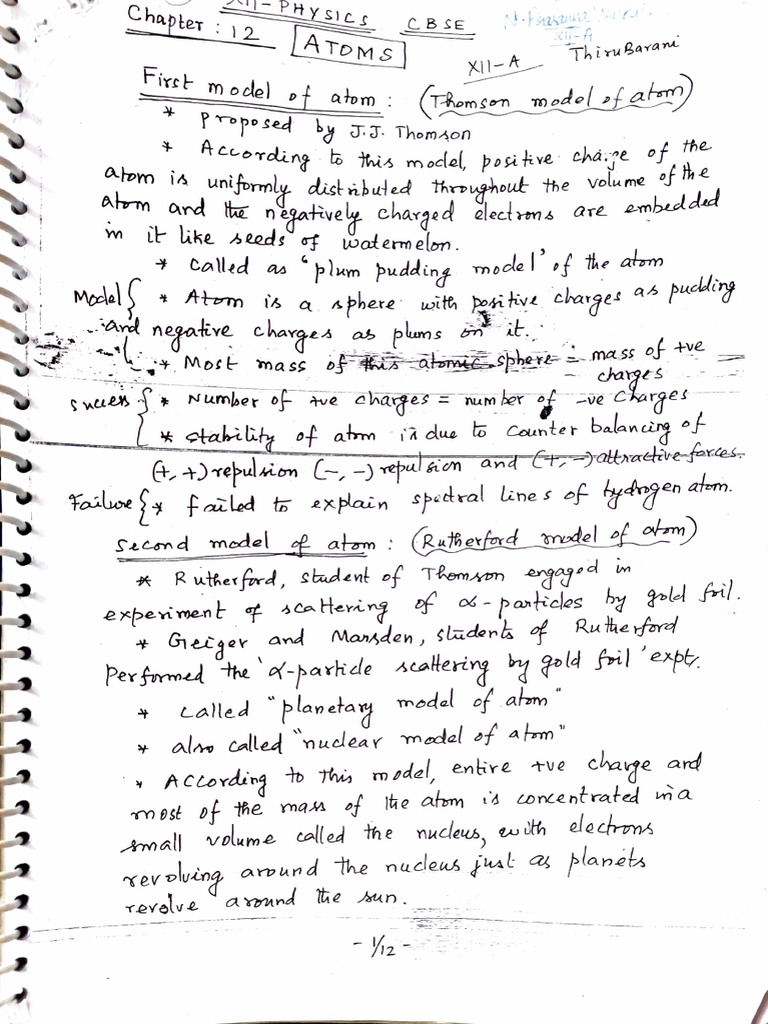 XII-PHYSICS CBSE
Chapter: 12 ATOMS XII-A ThiruBarani
XII-A
First model of atom: (Thomson model of atom)
* Proposed by J.J. Thomson
* According to this model, positive charge of the
atom is uniformly distributed throughout the volume of the
atom and the negatively charged electrons are embedded
in it like seeds of watermelon.
* Called as "plum pudding model" of the atom
Model { * Atom is a sphere with positive charges as pudding
and negative charges as plums on it.
* Most mass of this atomic sphere = mass of +ve
charges
Success { * Number of +ve charges = number of -ve charges
* stability of atom is due to counter balancing of
(+, +) repulsion (-, -) repulsion and (+, -) attractive forces.
Failure { * failed to explain spectral lines of hydrogen atom.
Second model of atom: (Rutherford model of atom)
* Rutherford, student of Thomson engaged in
experiment of scattering of α-particles by gold foil.
* Geiger and Marsden, students of Rutherford
Performed the 'α-particle scattering by gold foil' expt.
* Called "planetary model of atom"
* also called "nuclear model of atom"
* According to this model, entire +ve charge and
most of the mass of the atom is concentrated in a
small volume called the nucleus, with electrons
revolving around the nucleus just as planets
revolve around the sun.
- 1/12 -